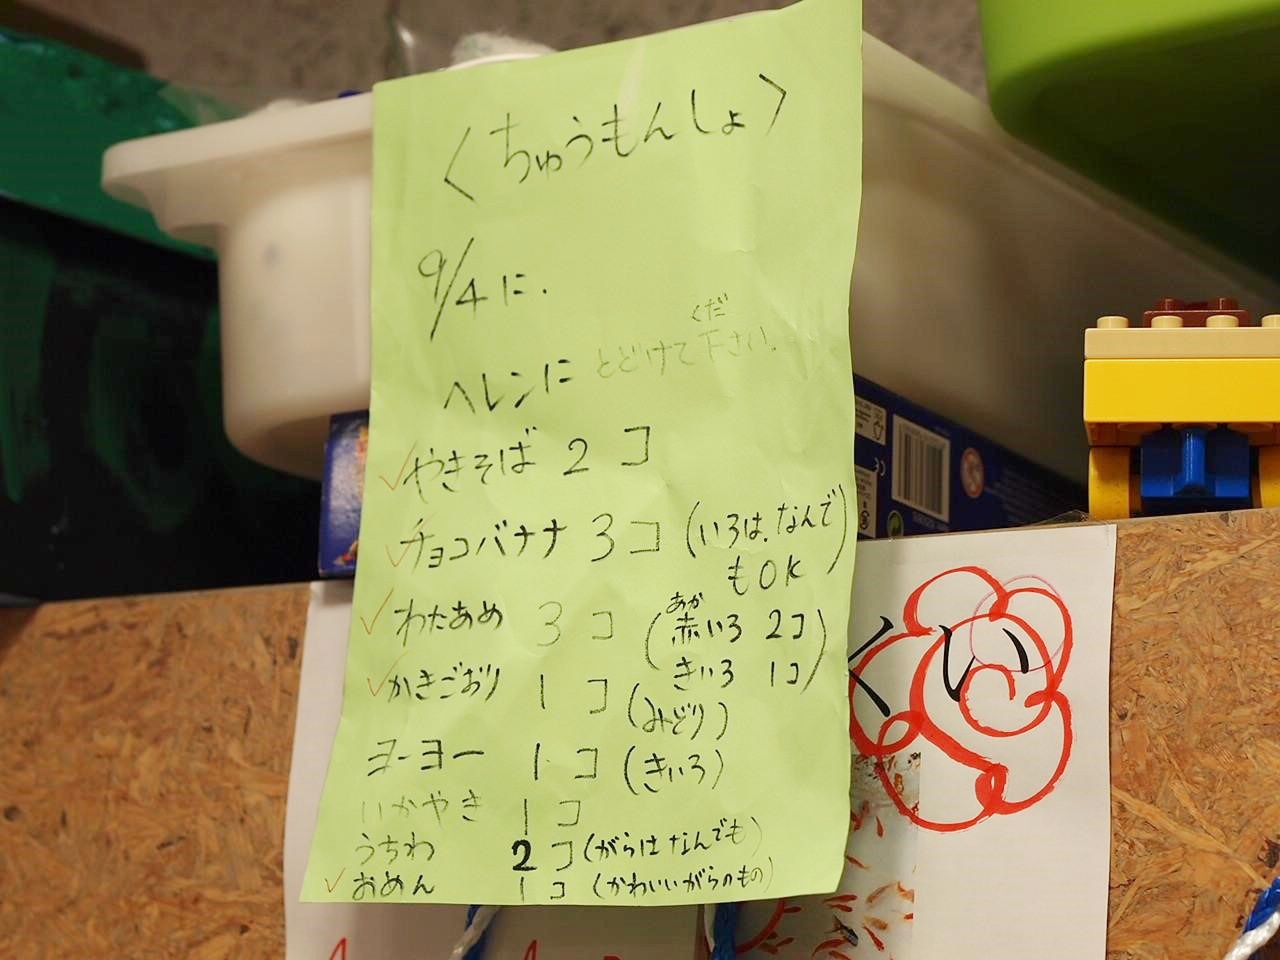 〈ちゅうもんしょ〉
9/4に.
くだ
ヘレンに とどけて下さい.
✓やきそば 2 コ
✓チョコバナナ 3 コ (いろは、なんで
もOK)
あか
✓わたあめ 3 コ (赤いろ 2コ
きいろ 1コ)
✓かきごおり 1 コ (みどり)
ヨーヨー 1 コ (きいろ)
いかやき 1 コ
うちわ 2 コ (がらはなんでも)
✓おめん 1 コ (かわいいがらのもの)
くい